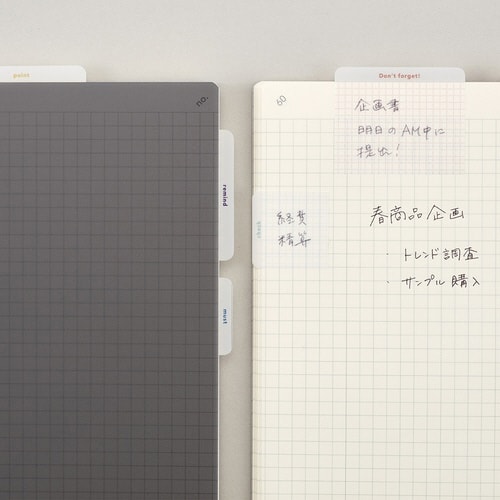 point
no.
remind
must
Don't forget!
60
企画書
明日のAM中に
提出!
経費
精算
春商品企画
・トレンド調査
・サンプル購入